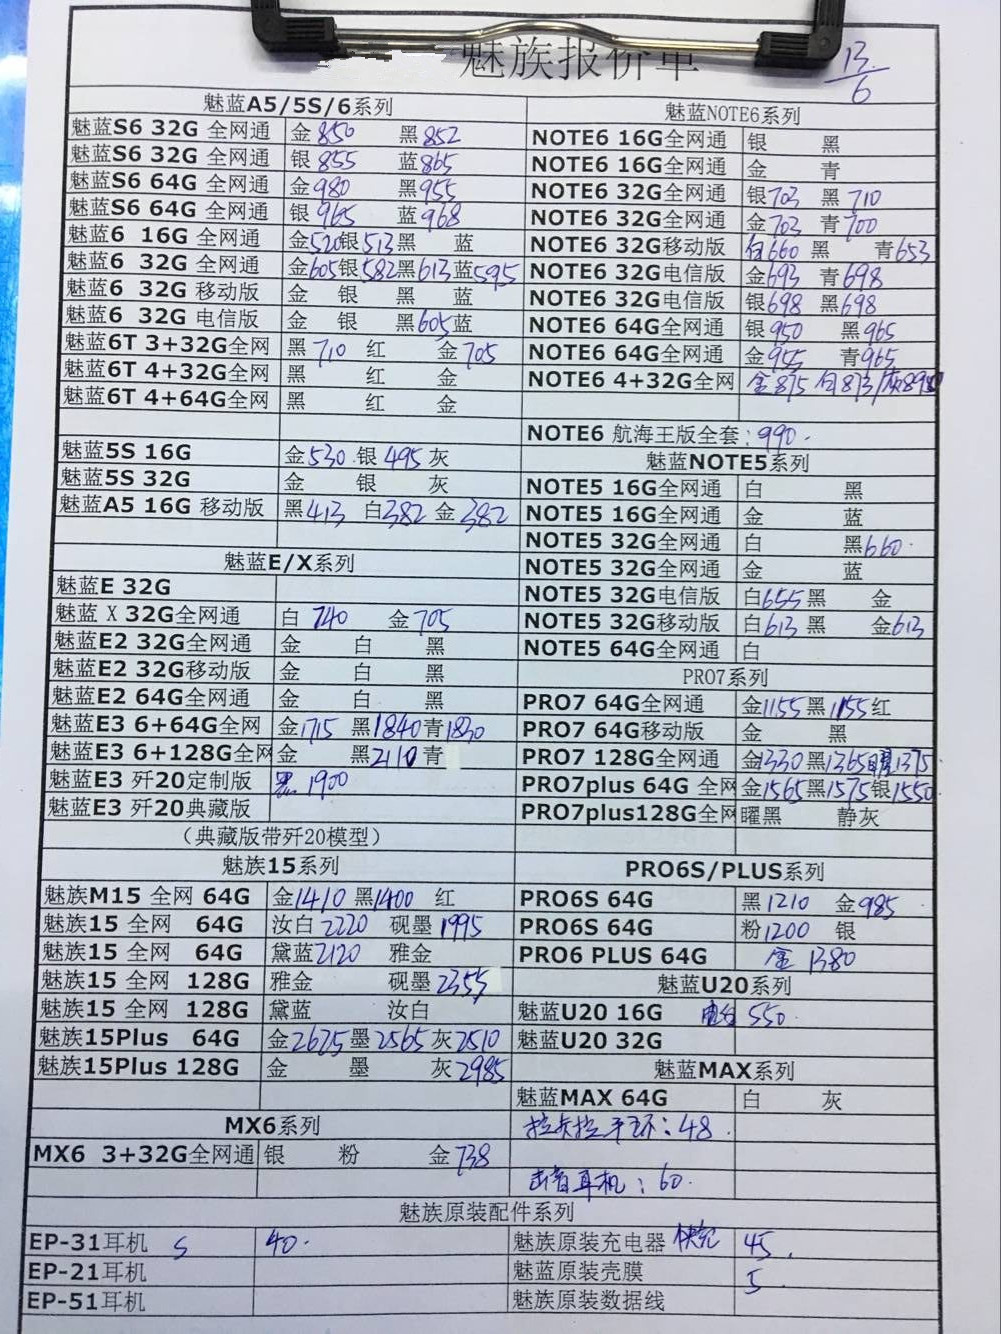 魅族报价单
13/6
魅蓝A5/5S/6系列
魅蓝S6 32G 全网通 金850 黑852
魅蓝S6 32G 全网通 银855 蓝865
魅蓝S6 64G 全网通 金980 黑955
魅蓝S6 64G 全网通 银965 蓝968
魅蓝6 16G 全网通 金520银513黑 蓝
魅蓝6 32G 全网通 金605银582黑613蓝595
魅蓝6 32G 移动版 金 银 黑 蓝
魅蓝6 32G 电信版 金 银 黑605蓝
魅蓝6T 3+32G全网 黑710 红 金705
魅蓝6T 4+32G全网 黑 红 金
魅蓝6T 4+64G全网 黑 红 金
魅蓝5S 16G 金530 银495灰
魅蓝5S 32G 金 银 灰
魅蓝A5 16G 移动版 黑413 白382 金382
魅蓝E/X系列
魅蓝E 32G
魅蓝X 32G全网通 白740 金705
魅蓝E2 32G全网通 金 白 黑
魅蓝E2 32G移动版 金 白 黑
魅蓝E2 64G全网通 金 白 黑
魅蓝E3 6+64G全网 金1715 黑1840青1830
魅蓝E3 6+128G全网 金 黑2110青
魅蓝E3 歼20定制版 黑1900
魅蓝E3 歼20典藏版
（典藏版带歼20模型）
魅族15系列
魅族M15 全网 64G 金1410 黑1400 红
魅族15 全网 64G 汝白2220 砚墨1995
魅族15 全网 64G 黛蓝2120 雅金
魅族15 全网 128G 雅金 砚墨2355
魅族15 全网 128G 黛蓝 汝白
魅族15Plus 64G 金2625墨2565灰2510
魅族15Plus 128G 金 墨 灰2985
MX6系列
MX6 3+32G全网通 银 粉 金738
魅蓝NOTE6系列
NOTE6 16G全网通 银 黑
NOTE6 16G全网通 金 青
NOTE6 32G全网通 银703 黑710
NOTE6 32G全网通 金703 青700
NOTE6 32G移动版 白660 黑 青653
NOTE6 32G电信版 金693 青698
NOTE6 32G电信版 银698 黑698
NOTE6 64G全网通 银950 黑965
NOTE6 64G全网通 金955 青965
NOTE6 4+32G全网 金875 白873/灰
NOTE6 航海王版全套：990.
魅蓝NOTE5系列
NOTE5 16G全网通 白 黑
NOTE5 16G全网通 金 蓝
NOTE5 32G全网通 白 黑660.
NOTE5 32G全网通 金 蓝
NOTE5 32G电信版 白655黑 金
NOTE5 32G移动版 白613黑 金613
NOTE5 64G全网通 白
PRO7系列
PRO7 64G全网通 金1155黑1155红
PRO7 64G移动版 金 黑
PRO7 128G全网通 金1330黑1365曜1375
PRO7plus 64G 全网 金1565黑1575银1550
PRO7plus128G全网 曜黑 静灰
PRO6S/PLUS系列
PRO6S 64G 黑1210 金985
PRO6S 64G 粉1200 银
PRO6 PLUS 64G 金1380
魅蓝U20系列
魅蓝U20 16G 550.
魅蓝U20 32G
魅蓝MAX系列
魅蓝MAX 64G 白 灰
拉卡拉手环：48.
耳机：60.
魅族原装配件系列
EP-31耳机 S 40.
EP-21耳机
EP-51耳机
魅族原装充电器 快充 45.
魅蓝原装壳膜 5.
魅族原装数据线